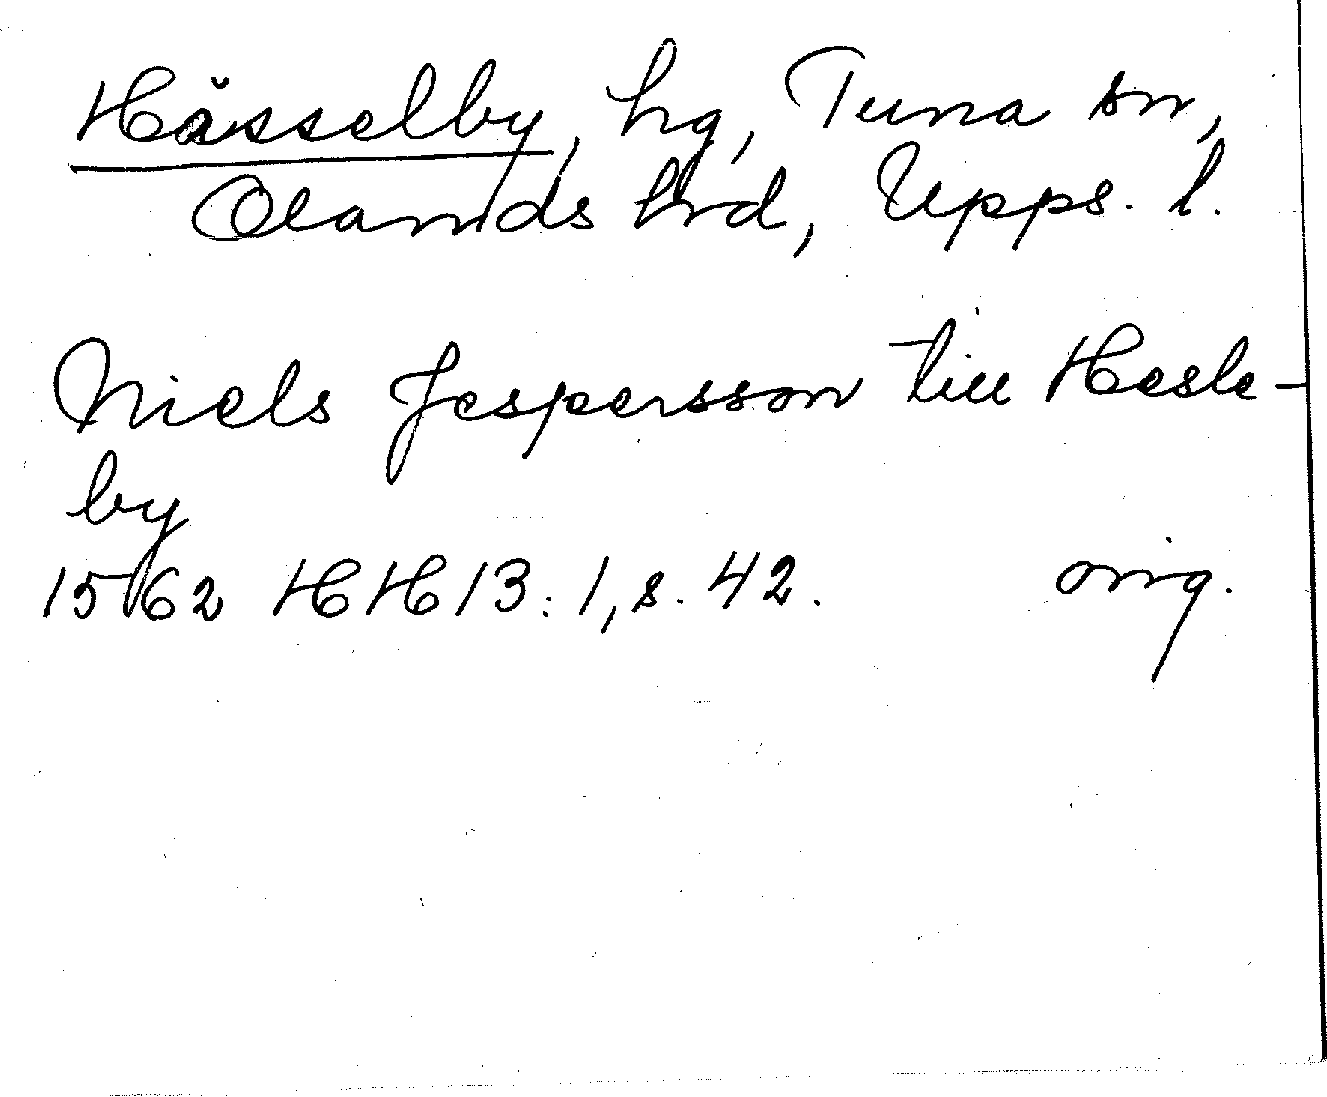 Hässelby, hg, Tuna sn,
Olands hrd, Upps. l.
Niels Jespersson till Hesle-
by
1562 HH 13:1, s. 42. orig.